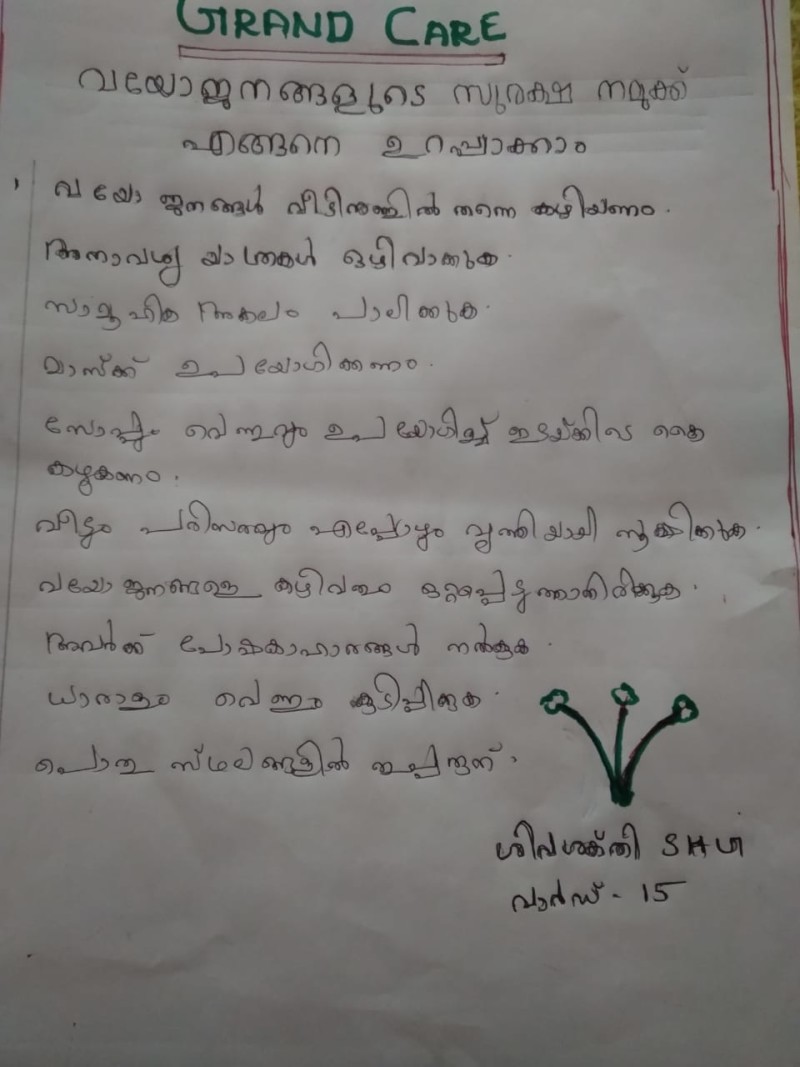 GRAND CARE
വയോജനങ്ങളുടെ സുരക്ഷ നമുക്ക്
എങ്ങനെ ഉറപ്പാക്കാം
വയോ ജനങ്ങൾ വീട്ടിനുള്ളിൽ തന്നെ കഴിയണം.
അനാവശ്യ യാത്രകൾ ഒഴിവാക്കുക.
സാമൂഹിക അകലം പാലിക്കുക.
മാസ്ക് ഉപയോഗിക്കണം.
സോപ്പും വെള്ളവും ഉപയോഗിച്ച് ഇടയ്ക്കിടെ കൈ
കഴുകണം.
വീടും പരിസരവും എപ്പോഴും വൃത്തിയായി സൂക്ഷിക്കുക.
വയോ ജനങ്ങളെ കഴിവതും ഒറ്റപ്പെടുത്താതിരിക്കുക.
അവർക്ക് പോഷകാഹാരങ്ങൾ നൽകുക.
ധാരാളം വെള്ളം കുടിപ്പിക്കുക.
പൊതു സ്ഥലങ്ങളിൽ തുപ്പരുത്.
ശിവശക്തി SHG
വാർഡ് - 15